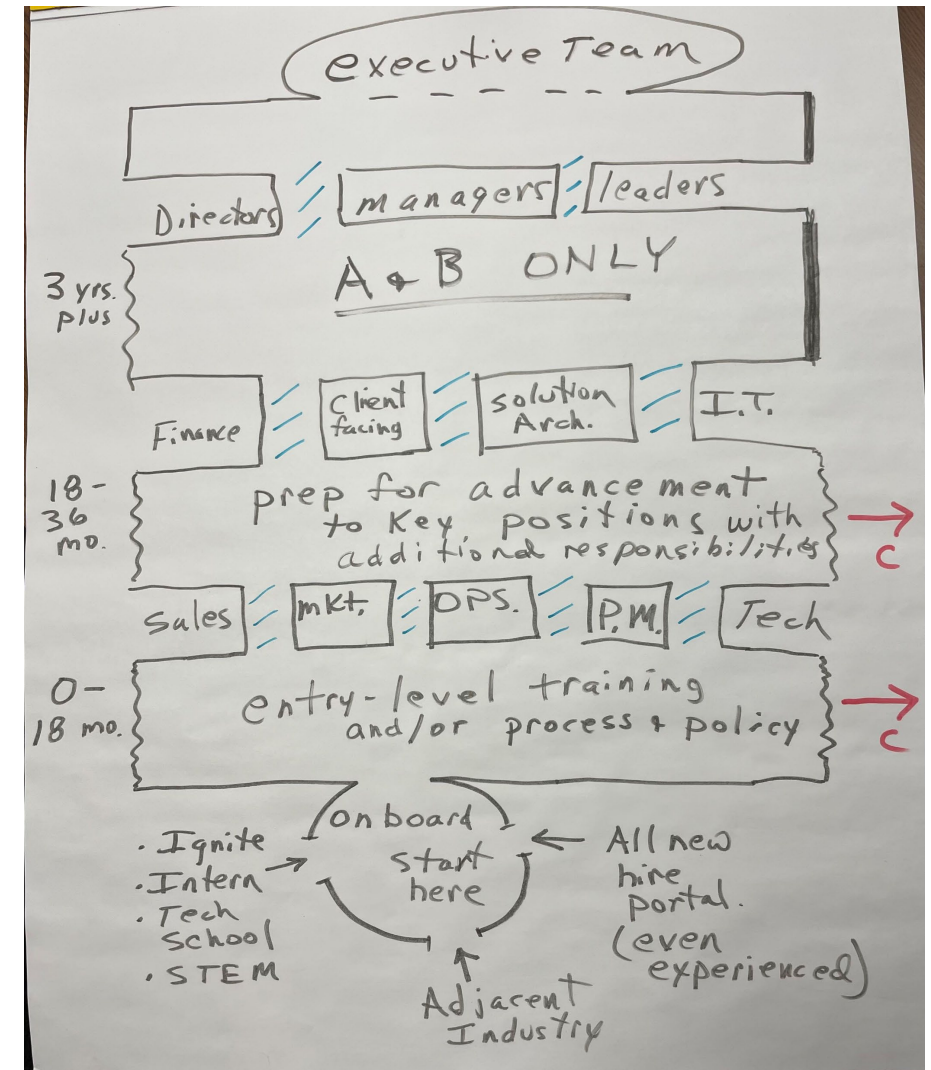 executive Team
Directors
managers
leaders
A & B ONLY
3 yrs.
plus
Finance
Client
facing
Solution
Arch.
I.T.
18-
36
mo.
prep for advancement
to Key positions with
additional responsibilities
C
Sales
mkt.
OPS.
P.M.
Tech
0-
18 mo.
entry-level training
and/or process + policy
C
onboard
start
here
• Ignite
• Intern
• Tech
School
• STEM
All new
hire
portal.
(even
experienced)
Adjacent
Industry